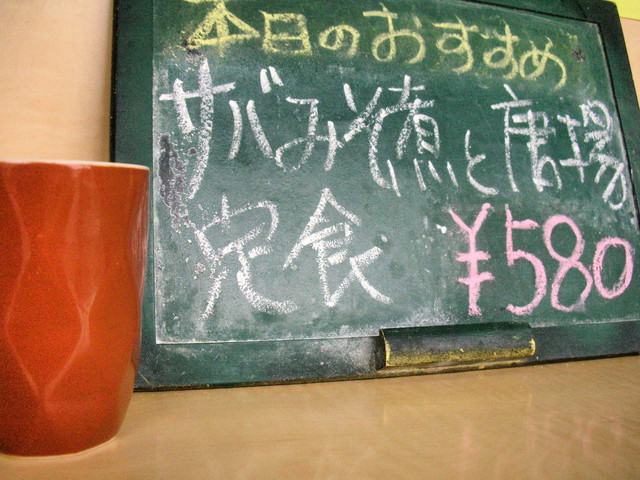 本日のおすすめ
サバみそ煮と唐揚
定食 ¥580